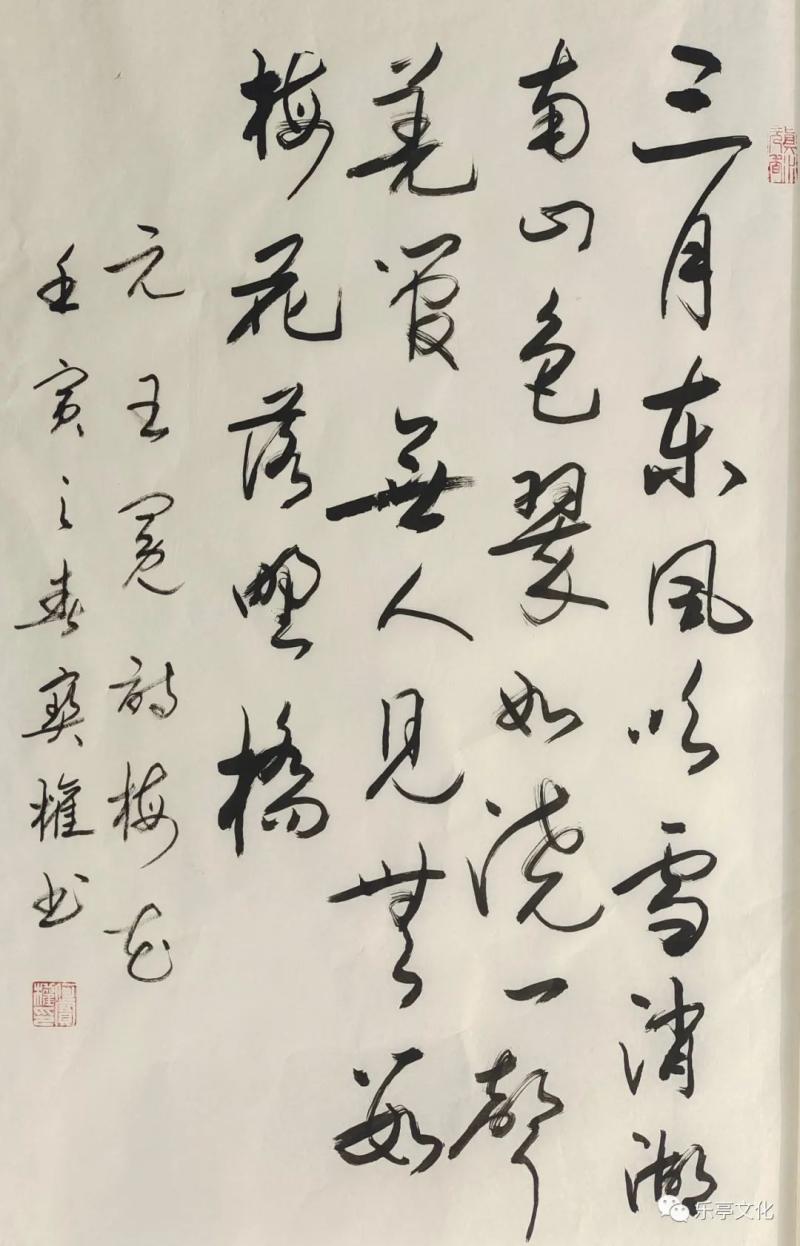 三月东风吹雪消湖
南山色翠如浇一声
羌管無人见無数
梅花落野橋
元王冕诗梅花
壬寅之春寶權书
乐亭文化